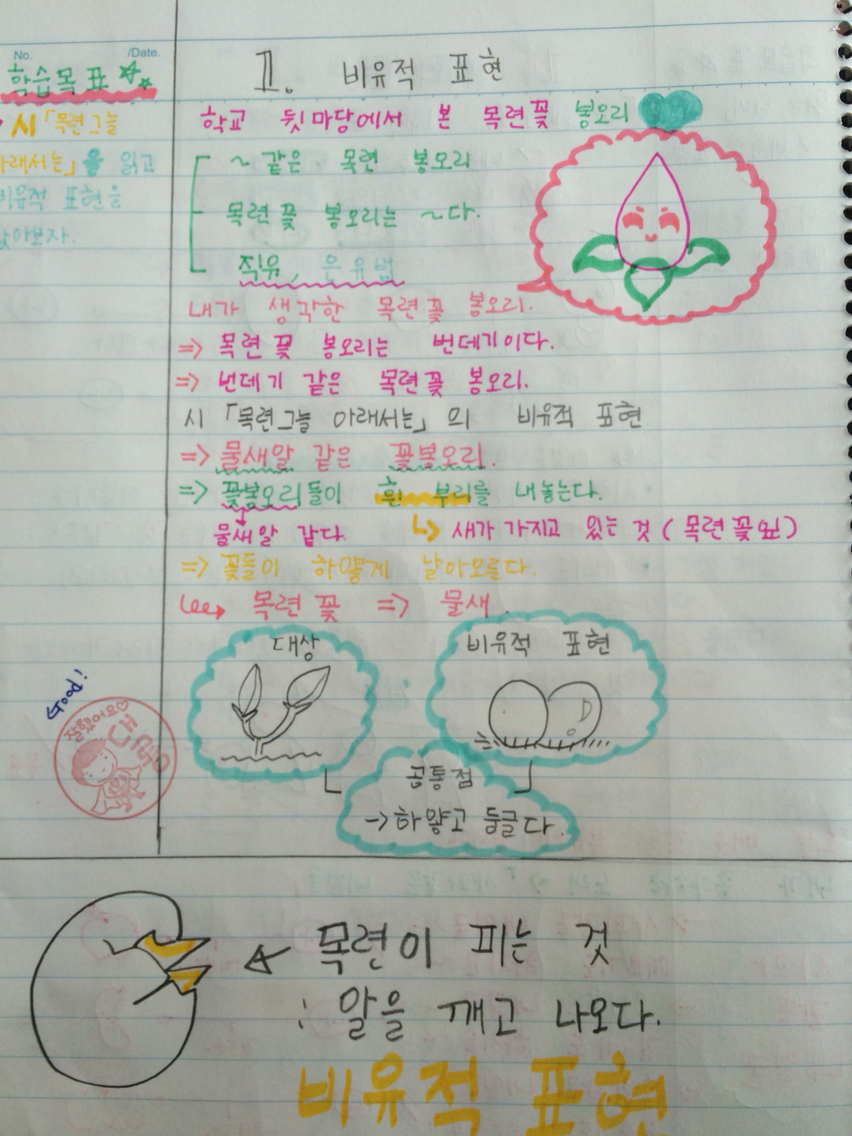 No.
/Date.
학습목표
시「목련그늘
아래서는」을 읽고
비유적 표현을
찾아보자.
1. 비유적 표현
학교 뒷마당에서 본 목련꽃 봉오리
~ 같은 목련 봉오리
목련꽃 봉오리는 ~다.
직유, 은유법
내가 생각한 목련꽃 봉오리.
=> 목련꽃 봉오리는 번데기이다.
=> 번데기 같은 목련꽃 봉오리.
시 「목련그늘 아래서는」의 비유적 표현
=> 물새알 같은 꽃봉오리.
=> 꽃봉오리들이 흰 부리를 내놓는다.
물새알 같다. ↳ 새가 가지고 있는 것 (목련꽃잎)
=> 꽃들이 하얗게 날아오른다.
목련꽃 => 물새.
대상
비유적 표현
공통점
→ 하얗고 둥글다.
Good!
잘했어요♡
목련이 피는 것
: 알을 깨고 나오다.
비유적 표현